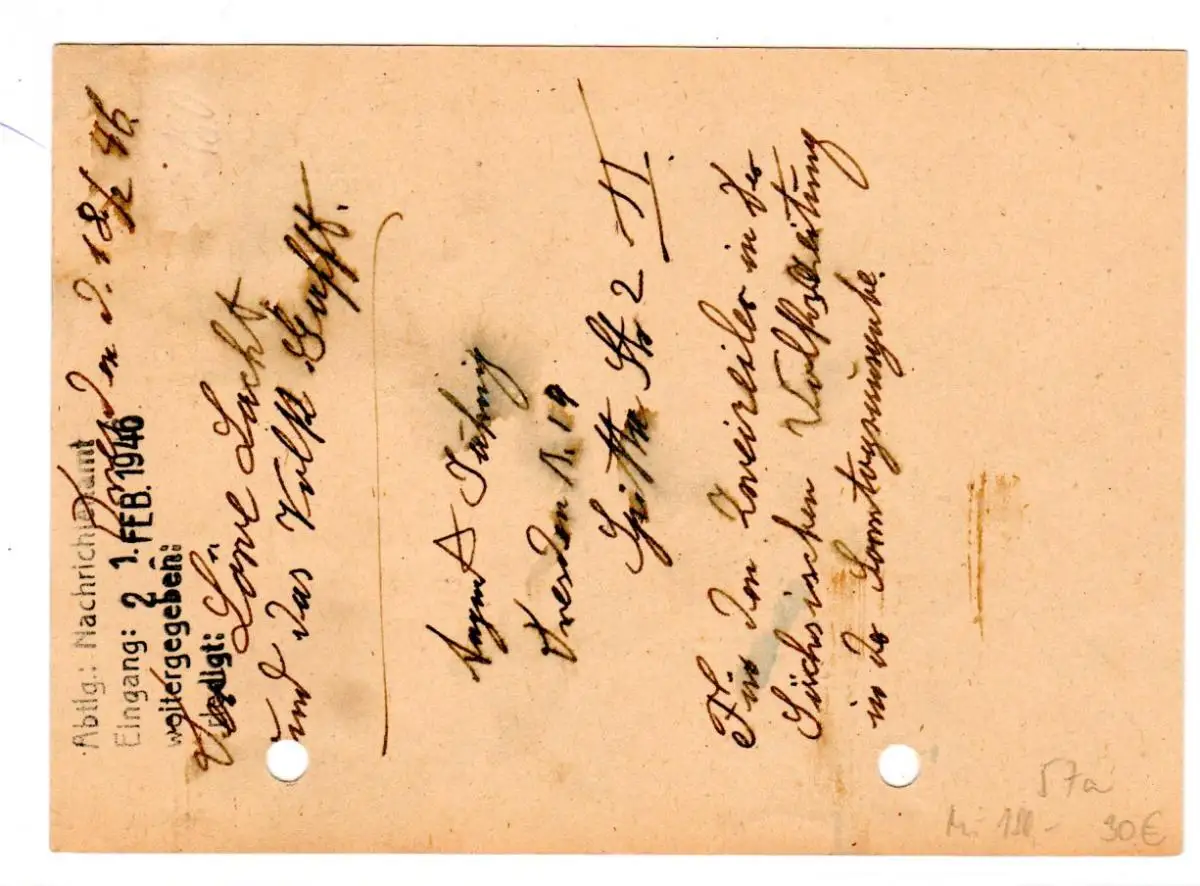 Abtlg.: Nachrichtenamt
Eingang: 2 1. FEB. 1946
weitergegeben:
erledigt:
Dresden d. 18/2 46.
Löwe Lacht
und das Volk
Dresden A. 19
Str 2 II
Für den Zweizeiler in der
Sächsischen Volkszeitung
in der Sonntagsausgabe.
57a
Mi 180.- 90€